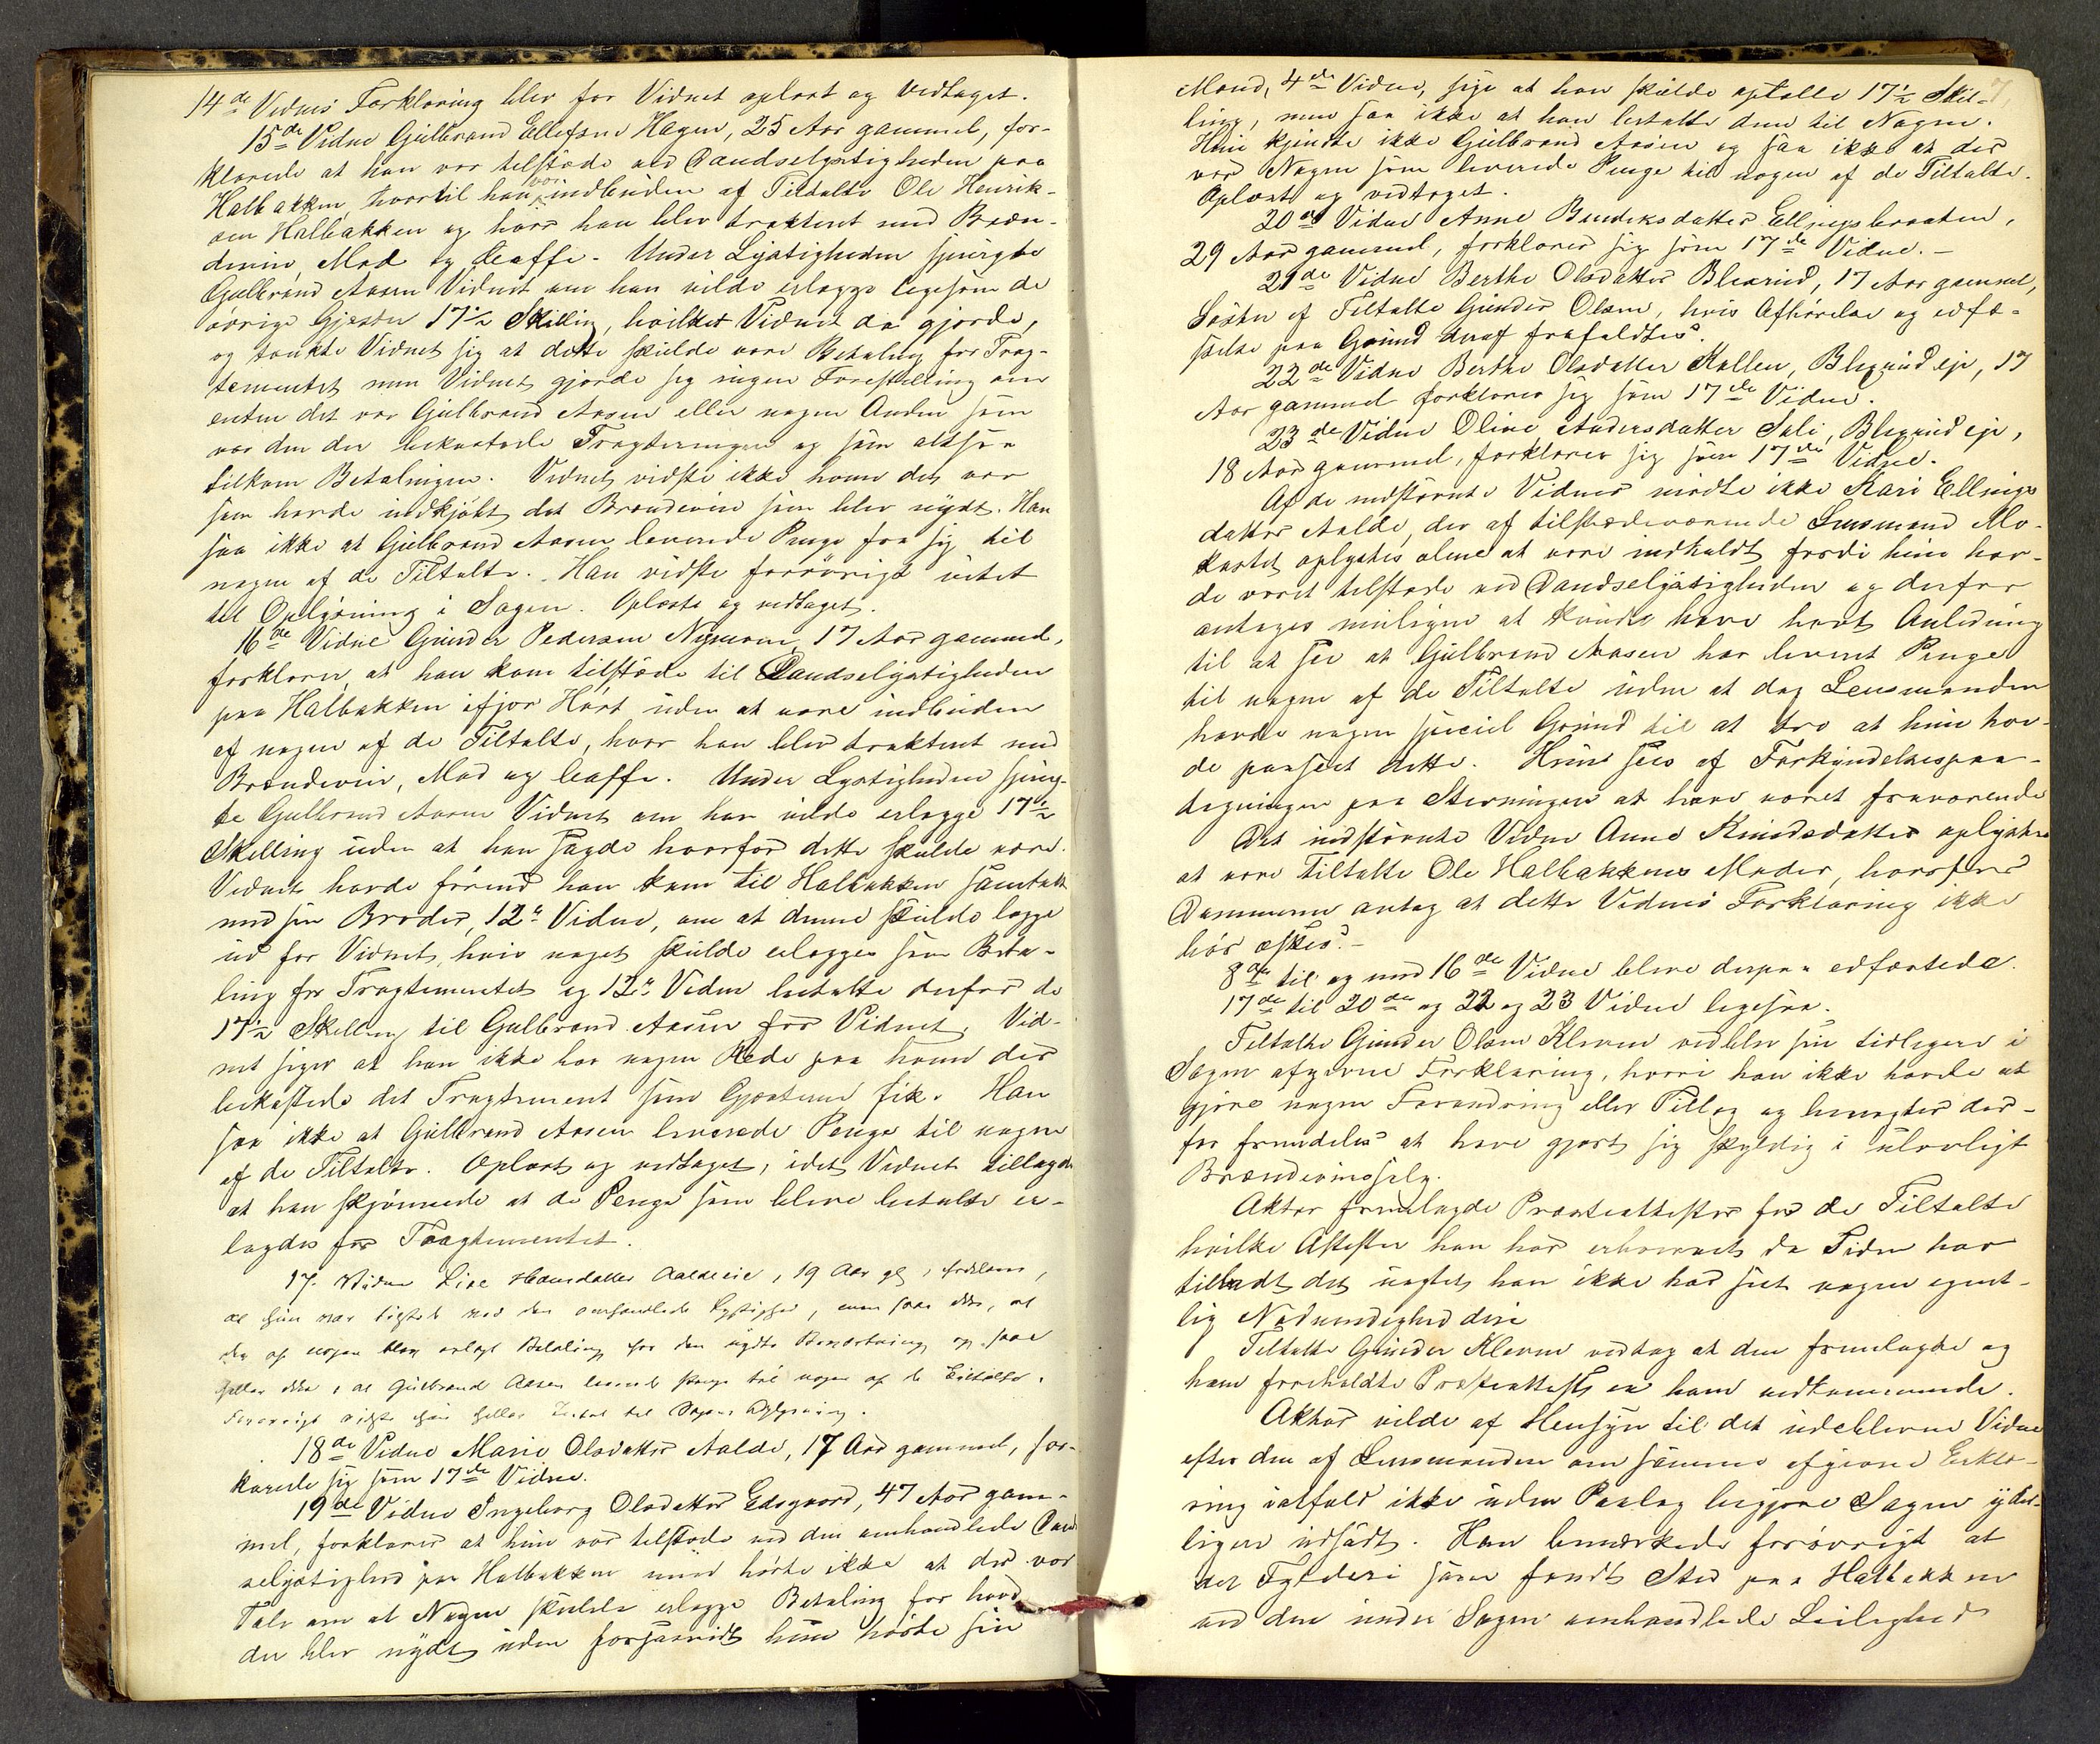 14de Vidnes Forklaring blev for Vidnet oplæst og vedtaget.
15de Vidne Gulbrand Ellefsen Hagen, 25 Aar gammel, for-
klarede at han var tilstæde ved Dandselystigheden paa
Halbakken hvortil han var indbuden af Tiltalte Ole Henrik-
sen Halbakken og hvor han blev trakteret med Brænde-
viin, Mad og Caffe. Under Lystigheden spurgte
Gulbrand Aasen Vidnet om han vilde erlægge ligesom de
øvrige Gjester 17½ Skilling, hvilket Vidnet da gjorde,
og tænkte Vidnet sig at dette skulde være Betaling for Trag-
tementet men Vidnet gjorde sig ingen Forestilling om
enten det var Gulbrand Aasen eller nogen Anden som
var den der bekostede Tragteringen og som altsaa
tilkom Betalingen. Vidnet vidste ikke hvem det var
som havde indkjøbt det Brændeviin som blev nydt. Han
saa ikke at Gulbrand Aasen leverede Penge fra sig til
nogen af de Tiltalte. Han vidste forøvrigt intet
til Oplysning i Sagen. Oplæst og vedtaget.
16de Vidne Gunder Pedersen Nymoen 17 Aar gammel,
forklarer, at han kom tilstæde til Dandselystigheden
paa Halbakken ifjor Høst uden at være indbuden
af nogen af de Tiltalte, hvor han blev trakteret med
Brændeviin, Mad og Caffe. Under Lystigheden spurg-
te Gulbrand Aasen Vidnet om han vilde erlægge 17½
Skilling uden at han sagde hvorfor dette skulde være.
Vidnet havde førend han kom til Halbakken samtalt
med sin Broder, 12te Vidne, om at denne skulde lægge
ud for Vidnet, hvis noget skulde erlægges som Beta-
ling for Tragtementet og 12te Vidne betalte derfor de
17½ Skilling til Gulbrand Aasen for Vidnet. Vid-
net siger at han ikke har nogen Rede paa hvem der
bekostede det Tragtement som Gjæsterne fik. Han
saa ikke at Gulbrand Aasen leverede Penge til nogen
af de Tiltalte. Oplæst og vedtaget, idet Vidnet tillagde
at han skjønnede at de Penge som bleve betalte er-
lagdes for Tragtementet.
17. Vidne Live Hansdatter Aaldeeie, 19 Aar gl, forklarer,
at hun var tilstede ved den omhandlede Lystighed, men saae ikke, at
der af nogen blev erlagt Betaling for den nydte Beværtning og saae
heller ikke, at Gulbrand Aasen leverede Penge til nogen af de Tiltalte.
Forøvrigt vidste hun heller Intet til Sagens Oplysning.
18de Vidne Marie Olsdatter Aalde, 17 Aar gammel, for-
klarede sig som 17de Vidne.
19de Vidne Ingeborg Olsdatter Edsgaard, 47 Aar gam-
mel, forklarer at hun var tilstede ved den omhandlede Dand-
selystighed paa Halbakken men hørte ikke at der var
Tale om at Nogen skulde erlægge Betaling for hvad
der blev nydt uden forsaavidt hun hørte sin
Mand, 4de Vidne, sige at han skulde optælle 17½ Skil-
ling, men saa ikke at han betalte dem til Nogen.
Hun kjendte ikke Gulbrand Aasen og saa ikke at der
var Nogen som leverede Penge til nogen af de Tiltalte.
Oplæst og vedtaget.
20de Vidne Anne Bendiksdatter Ellingsbraaten,
29 Aar gammel, forklarer sig som 17de Vidne.
21de Vidne Berthe Olsdatter Blexrud, 17 Aar gammel,
Søster af Tiltalte Gunder Olsen, hvis Afhørelse og edfæ-
stelse paa Grund deraf frafaldtes.
22de Vidne Berthe Olsdatter Kollen, Blexrud eje, 17
Aar gammel forklarer sig som 17de Vidne.
23de Vidne Oline Andersdatter Sali, Blexrud eje,
18 Aar gammel, forklarer sig som 17de Vidne.
Af de indstævnte Vidner mødte ikke Kari Ellings-
datter Aalde, der af tilstædeværende Lensmand Mo-
kastet oplystes alene at være indkaldt fordi hun hav-
de været tilstæde ved Dandselystigheden og derfor
antages muligens at kunde have havt Anledning
til at see at Gulbrand Aasen har leveret Penge
til nogen af de Tiltalte uden at dog Lensmanden
havde nogen speciel Grund til at tro at hun hav-
de passeet dette. Hun sees af Forkyndelsespaa-
tegningen paa Stevningen at have været fraværende
Det indstævnte Vidne Anne Knudsdatter oplystes
at være Tiltalte Ole Halbakkens Moder, hvorfor
Dommeren antog at dette Vidnes Forklaring ikke
bør æskes.
8de til og med 16de Vidne bleve derpaa edfæstede.
17de til 20de og 22 og 23 Vidne ligesaa.
Tiltalte Gunder Olsen Kleven vedblev sin tidligere i
Sagen afgivne Forklaring, hvori han ikke havde at
gjøre nogen Forandring eller Tillæg og benægter der-
for fremdeles at have gjort sig skyldig i ulovligt
Brændeviinssalg.
Aktor fremlagde Præsteattester for de Tiltalte
hvilke Attester han har erhvervet da Tiden har
tilladt det uagtet han ikke har seet nogen egent-
lig Nødvendighed deri
Tiltalte Gunder Kleven vedtog at den fremlagte og
ham foreholdte Præsteattest er ham vedkommende.
Aktor vilde af Hensyn til det udeblevne Vidne
efter den af Lensmanden om samme afgivne Erklæ-
ring ialfald ikke uden Paalæg begjære Sagen yder-
ligere udsadt. Han bemærkede forøvrigt at
det Fylderi som fandt Sted paa Halbakken
ved den under Sagen omhandlede Leilighed